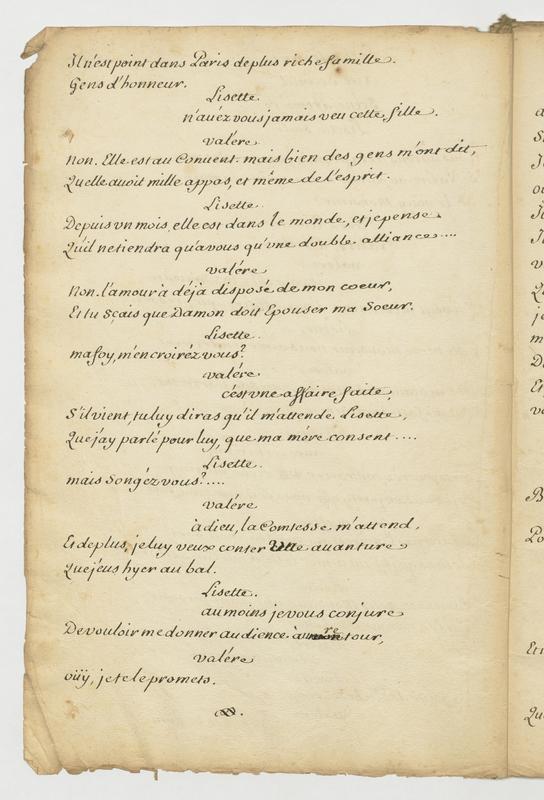 Il n'est point dans Paris de plus riche famille.
Gens d'honneur.
Lisette.
n'auéz vous jamais veu cette fille.
valére
non. Elle est au Conuent. mais bien des gens m'ont dit,
Qu'elle auoit mille appas, et même de l'esprit.
Lisette.
Depuis vn mois, elle est dans le monde, et je pense
Qu'il ne tiendra qu'a vous qu'vne double alliance....
valére
Non. l'amour à déja disposé de mon coeur,
Et tu Sçais que Damon doit Epouser ma Soeur.
Lisette.
ma foy, m'en croiréz vous?
valére
c'est vne affaire faite,
S'il vient, tu luy diras qu'il m'attende Lisette,
Que j'ay parlé pour luy, que ma mére consent....
Lisette.
mais Songéz vous?....
valére
àdieu, la Comtesse m'attend,
Et de plus, je luy veux conter auanture
Que j'eus hyer au bal.
Lisette.
au moins je vous conjure
De vouloir me donner audience à re tour,
valére
oüy, je te le promets.
d
Et
m
De
Et
Po
Et
Qu